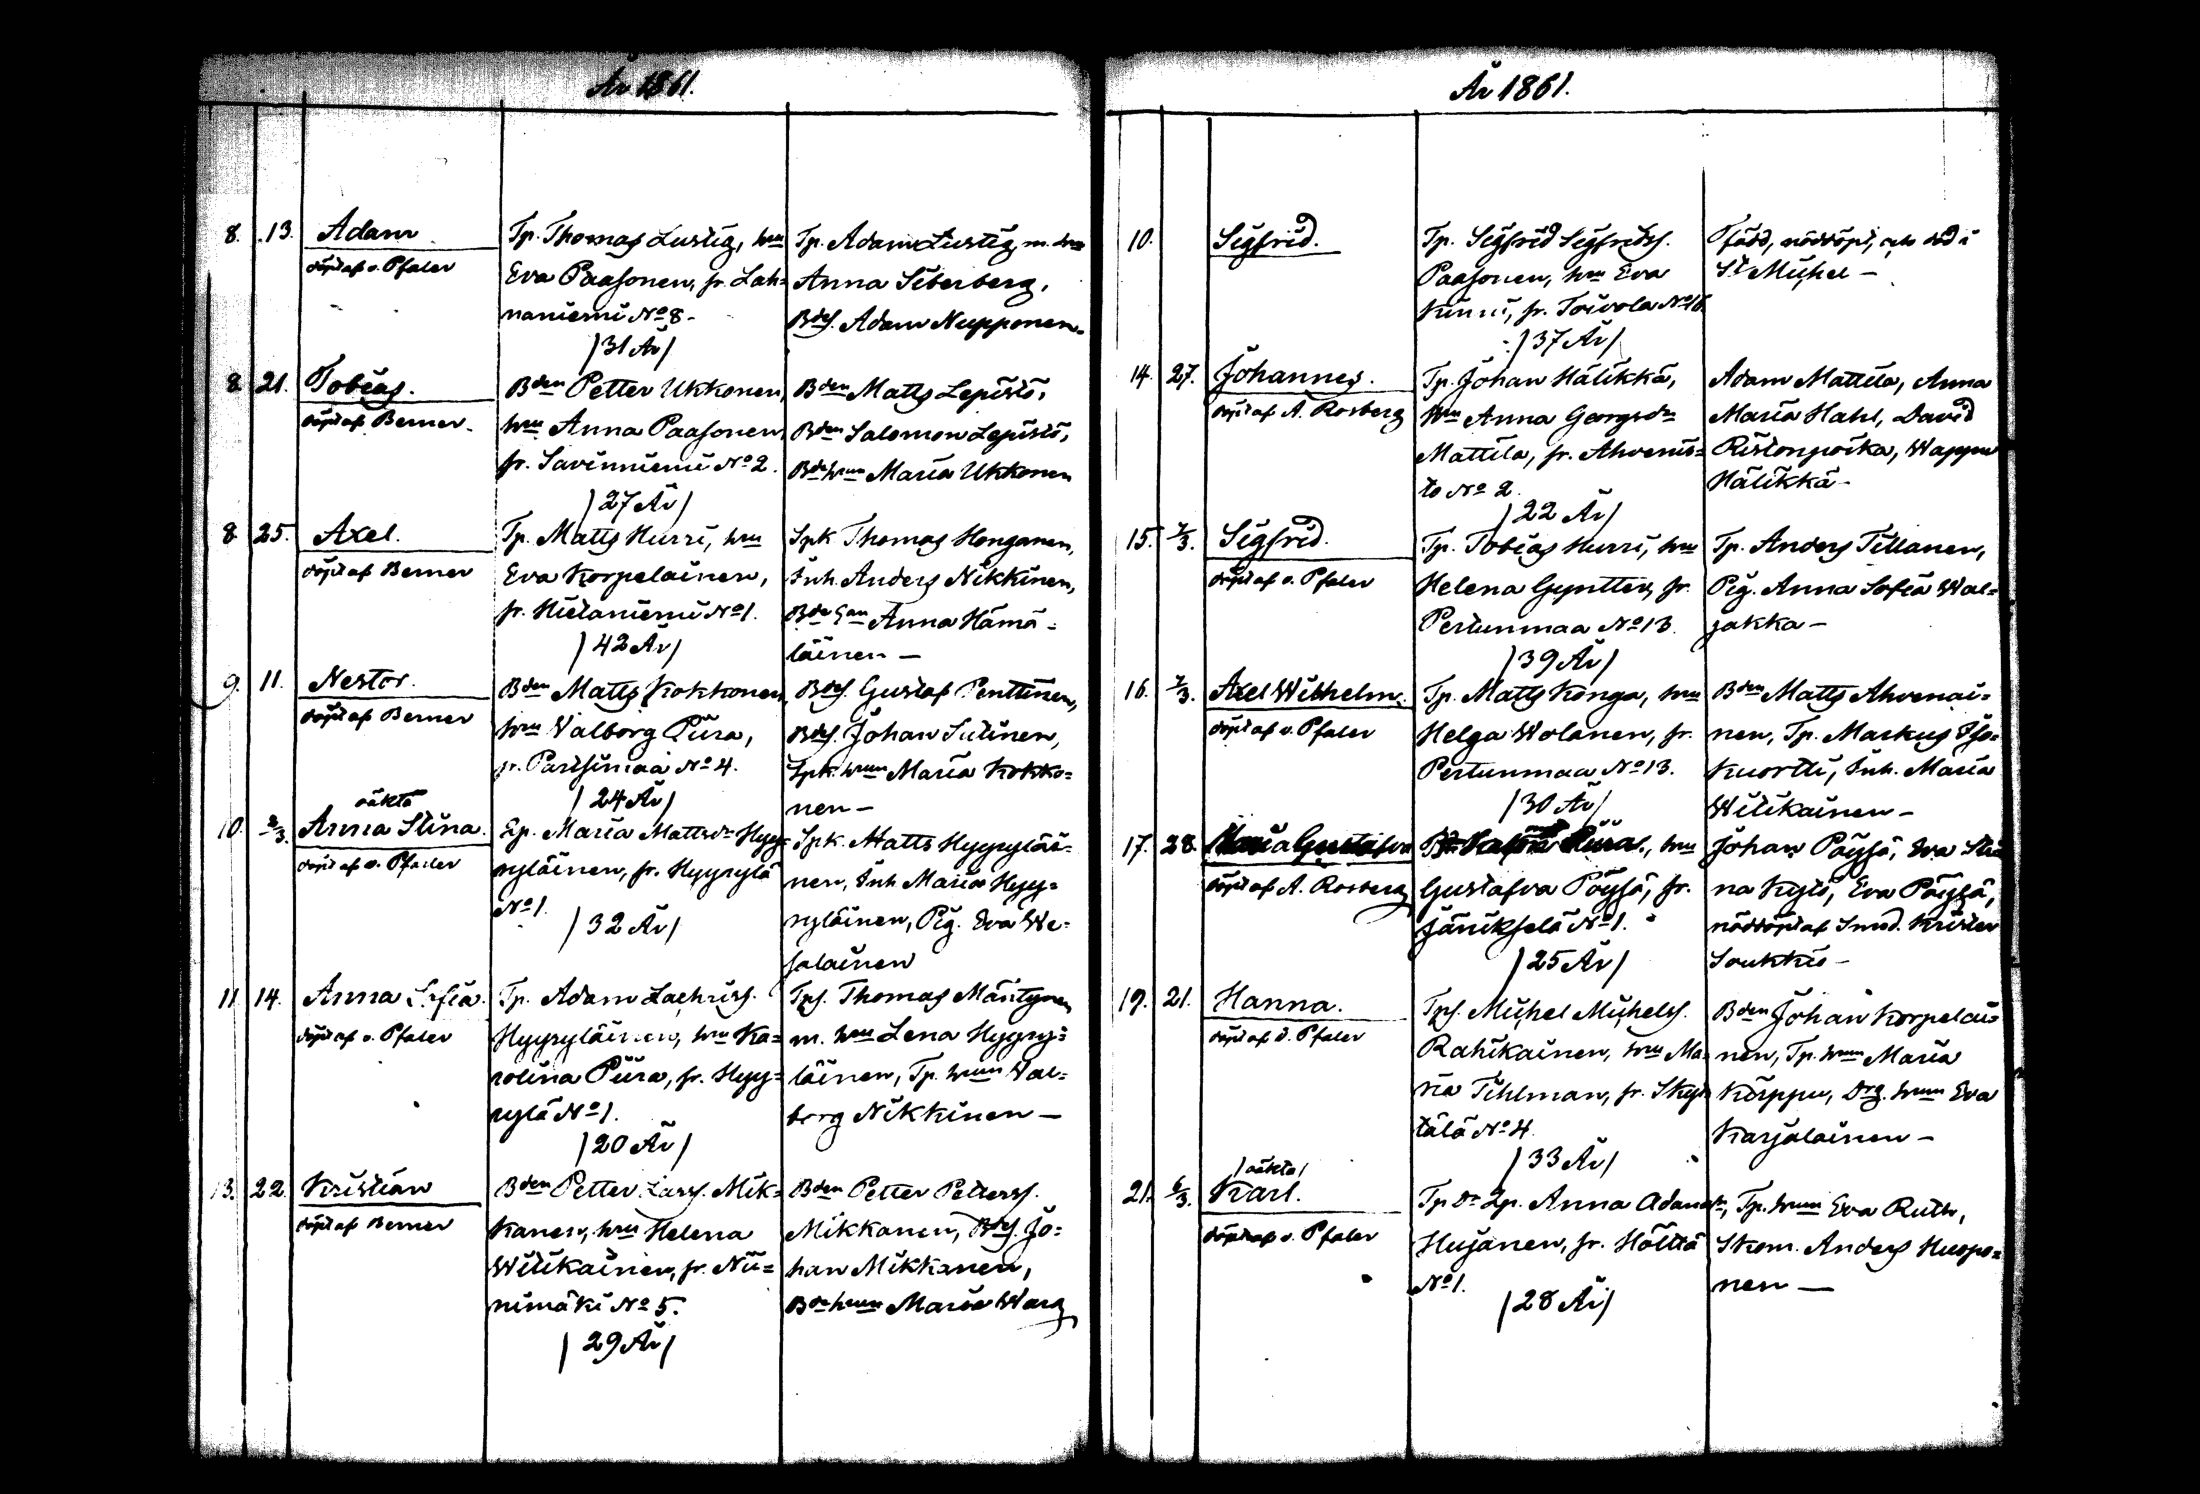 År 1861.
8. 13. Adam
döpt af v. Pfaler
Tp. Thomas Lustig, hm
Eva Paasonen, fr. Lah=
naniemi No 8.
/31 År/
Tp. Adam Lustig, m. hm
Anna Siberberg,
Bdes. Adam Nupponen.
8. 21. Tobias.
döpt af Berner.
Bden Petter Ukkonen,
hm Anna Paasonen,
fr. Savinniemi No 2.
/27 År/
Bden Matts Lepistö,
Bden Salomon Lepistö,
Bdehm Maria Ukkonen
8. 25. Axel.
döpt af Berner
Tp. Matts Hurri, hm
Eva Korpelainen,
fr. Hietaniemi No 1.
/42 År/
Spk Thomas Honganen,
Inh. Anders Nikkinen,
Anna Hämä=
läinen —
9. 11. Nestor.
döpt af Berner
Bden Matts Kokkonen,
hm Valborg Piira,
fr. Partsimaa No 4.
/24 År/
Bdes. Gustaf Penttinen,
Bdes. Johan Sutinen,
Spk. hm Maria Kokko=
nen —
10. 2/3. oäkta
Anna Stina.
döpt af v. Pfaler
Ep. Maria Mattsdr Hyy=
ryläinen, fr. Hyyrylä
No 1.
/32 År/
Spk. Matts Hyyryläi=
nen, Inh Maria Hyy=
ryläinen, Pig. Eva We=
salainen
11. 14. Anna Sofia.
döpt af v. Pfaler
Tp. Adam Zachriss.
Hyyryläinen, hm Ka=
rolina Piira, fr. Hyy=
rylä No 1.
/20 År/
Tps. Thomas Mäntynen
m. hm Lena Hyyry=
läinen, Tp. hm Val=
borg Nikkinen —
13. 22. Kristian
döpt af Berner
Bden Petter Larss. Mik=
kanen, hm Helena
Wilikainen, fr. Nii=
nimäki No 5.
/29 År/
Bden Petter Petterss.
Mikkanen, Bdes. Jo=
han Mikkanen,
Bdehm Maria Warg
År 1861.
10. Sigfrid.
Tp. Sigfrid Sigfridss.
Paasonen, hm Eva
Kinni, fr. Toivola No 16
/37 År/
Född, nöddöpt, och död i
St Michel —
14. 27. Johannes.
döpt af A. Rosberg
Tp. Johan Hälikkä,
hm Anna Georgsdr
Mattila, fr. Ahvenis=
to No 2.
/22 År/
Adam Mattila, Anna
Maria Hahl, David
Ristonpoika, Wappu
Hälikkä —
15. 7/3. Sigfrid.
döpt af v. Pfaler
Tp. Tobias Hurri, hm
Helena Gyntter, fr.
Pertunmaa No 13.
/39 År/
Tp. Anders Tillanen,
Pig. Anna Sofia Wal=
jakka —
16. 7/3. Axel Wilhelm.
döpt af v. Pfaler
Tp. Matts Konga, hm
Helga Wolanen, fr.
Pertunmaa No 13.
/30 År/
Bden Matts Ahvenai=
nen, Tp. Markus Iso=
kuortti, Inh. Maria
Wilikainen —
17. 28. Maria Gustafva
döpt af A. Rosberg
Piira, hm
Gustafva Pöysä, fr.
Jänikselä No 1.
/25 År/
Johan Pöysä, Eva Sti=
na Kylö, Eva Pöysä,
nöddöpt af Smed. Krister
Soukkio —
19. 21. Hanna.
döpt af v. Pfaler
Tps. Michel Michelss.
Rahikainen, hm Ma=
ria Tihlman, fr. Skyt=
tälä No 4.
/33 År/
Bden Johan Korpelai=
nen, Tp. hm Maria
Kirppu, Drg. hm Eva
Karjalainen —
21. 6/3. /oäkta/
Karl.
döpt af v. Pfaler
Tp. dr Ep. Anna Adamsdr,
Hujanen, fr. Hölttä
No 1.
/28 År/
Tp. hm Eva Ruth,
Skom. Anders Huopo=
nen —